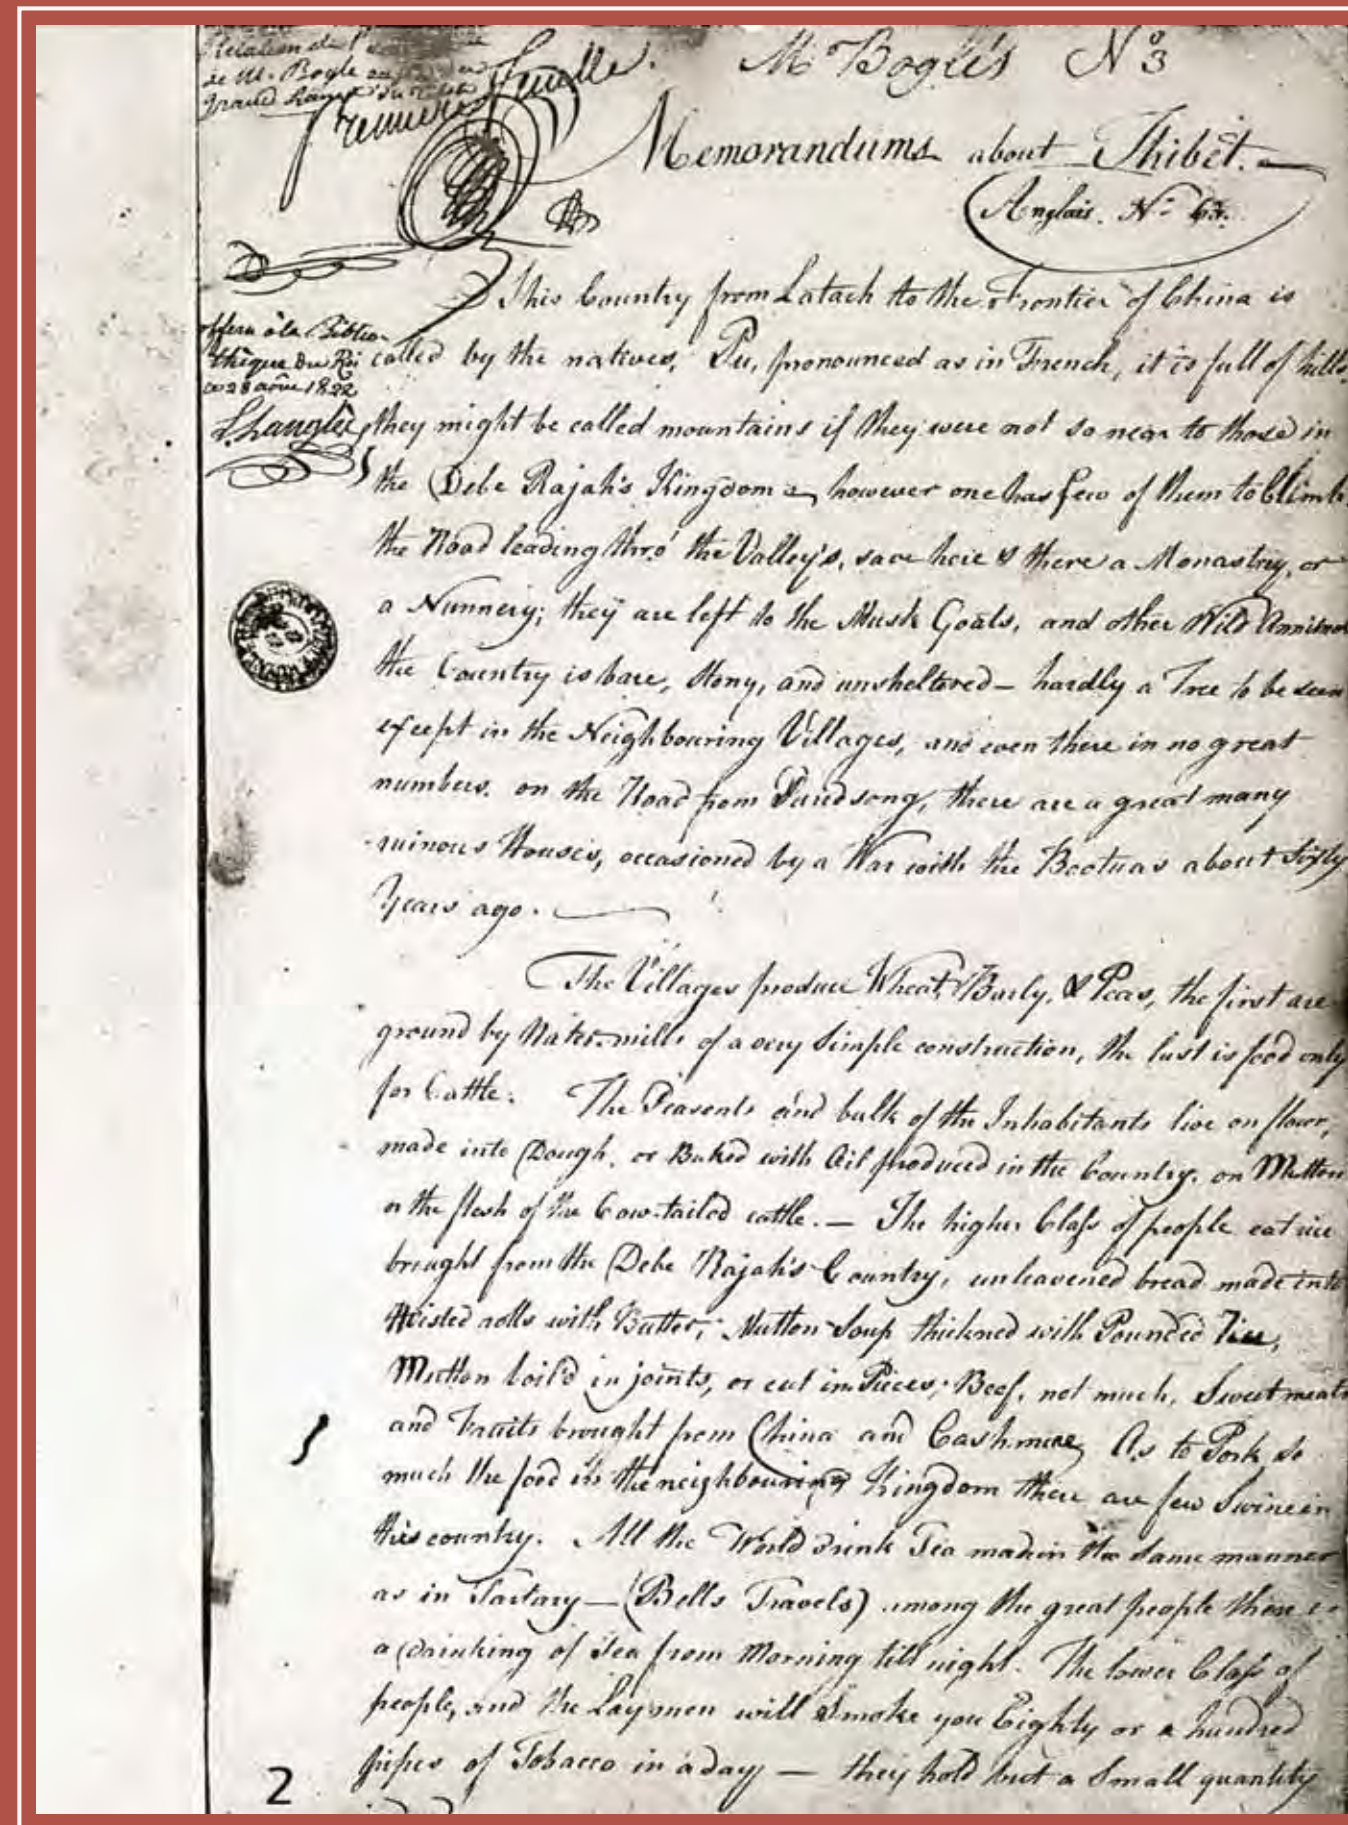 Relation de
de M. Bogle au
Grand Lama du Tibet
premiere feuille.
Mr. Bogle's No 3
Memorandums about Thibet.
Anglais. No
This Country from Latach to the Frontier of China is
offert à la Biblio-
thèque du Roi
ce 28 août 1822
L. Langlès
called by the natives, Pu, pronounced as in French, it is full of hills
they might be called mountains if they were not so near to those in
the Debe Rajah's Kingdom however one has few of them to Climb
the Road leading thro' the Valley's, save here & there a Monastry, or
a Nunnery; they are left to the Musk Goats, and other Wild
the Country is bare, Stony, and unsheltered — hardly a Tree to be seen
except in the Neighbouring Villages, and even there in no great
numbers. on the Road from there are a great many
ruinous Houses, occasioned by a War with the Bootuas about Sixty
Years ago.
The Villages produce Wheat, Barly, & Peas, the first are
ground by Water-mills of a very Simple construction, the last is food only
for Cattle. The Peasents and bulk of the Inhabitants live on flour,
made into Dough, or Baked with Oil produced in the Country, on Mutton
or the flesh of the Cow-tailed cattle. — The higher Class of people eat rice
brought from the Debe Rajah's Country, unleavened bread made into
twisted rolls with Butter; Mutton Soup thickned with Pounded Rice,
Mutton boil'd in joints, or cut in Pieces, Beef, not much, Sweetmeats
and Fruits brought from China and Cashmere, As to Pork so
much the food in the neighbouring Kingdom there are few Swine in
this country. All the World drink Tea made in the same manner
as in Tartary — (Bells Travels) among the great people there is
a drinking of Tea from Morning till night. The lower Class of
people, and the Laymen will Smoke you Eighty or a hundred
pipes of Tobacco in a day — they hold but a Small quantity
2